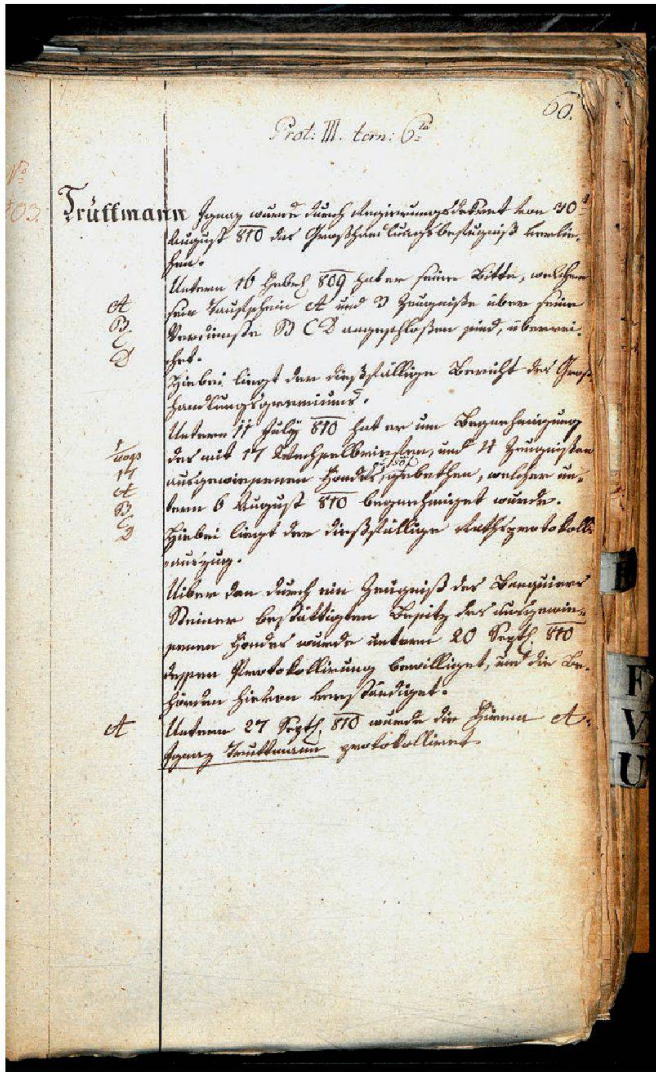 60.
Prot: III. tom: 6to
No
103.
Trüttmann Ignaz wurde durch Regierungsdekret von 30t
August 810 das Großhandlungsbefugniß verlie-
hen.
Untern 16 809 hat er seine Bitte, welcher
A sein Taufschein A und 3 Zeugniße über seine
B Verdienste B C D angeschloßen sind, überrei-
C
D chet.
Hiebei liegt der dießfällige Bericht des Groß-
handlungsgremiums.
Untern 11 July 810 hat er um Begnehmigung
des mit 17 Wechselbriefen, und 4 Zeugnißen
17 ausgewiesenen Fondes gebethen, welcher un-
A
B tern 6 August 810 begnehmiget wurde.
C
D Hiebei liegt der dießfällige Rathsprotokolls-
auszug.
Uiber den durch ein Zeugniß des Banquiers
Steiner bestättigten Besitz des ausgewie-
senen Fondes wurde untern 20 Septb. 810
dessen Protokollirung bewilliget, und die Be-
hörden hievon verständiget.
A Untern 27 Septb. 810 wurde die Firma A.
Ignaz Trüttmann protokolliret
F
V
U